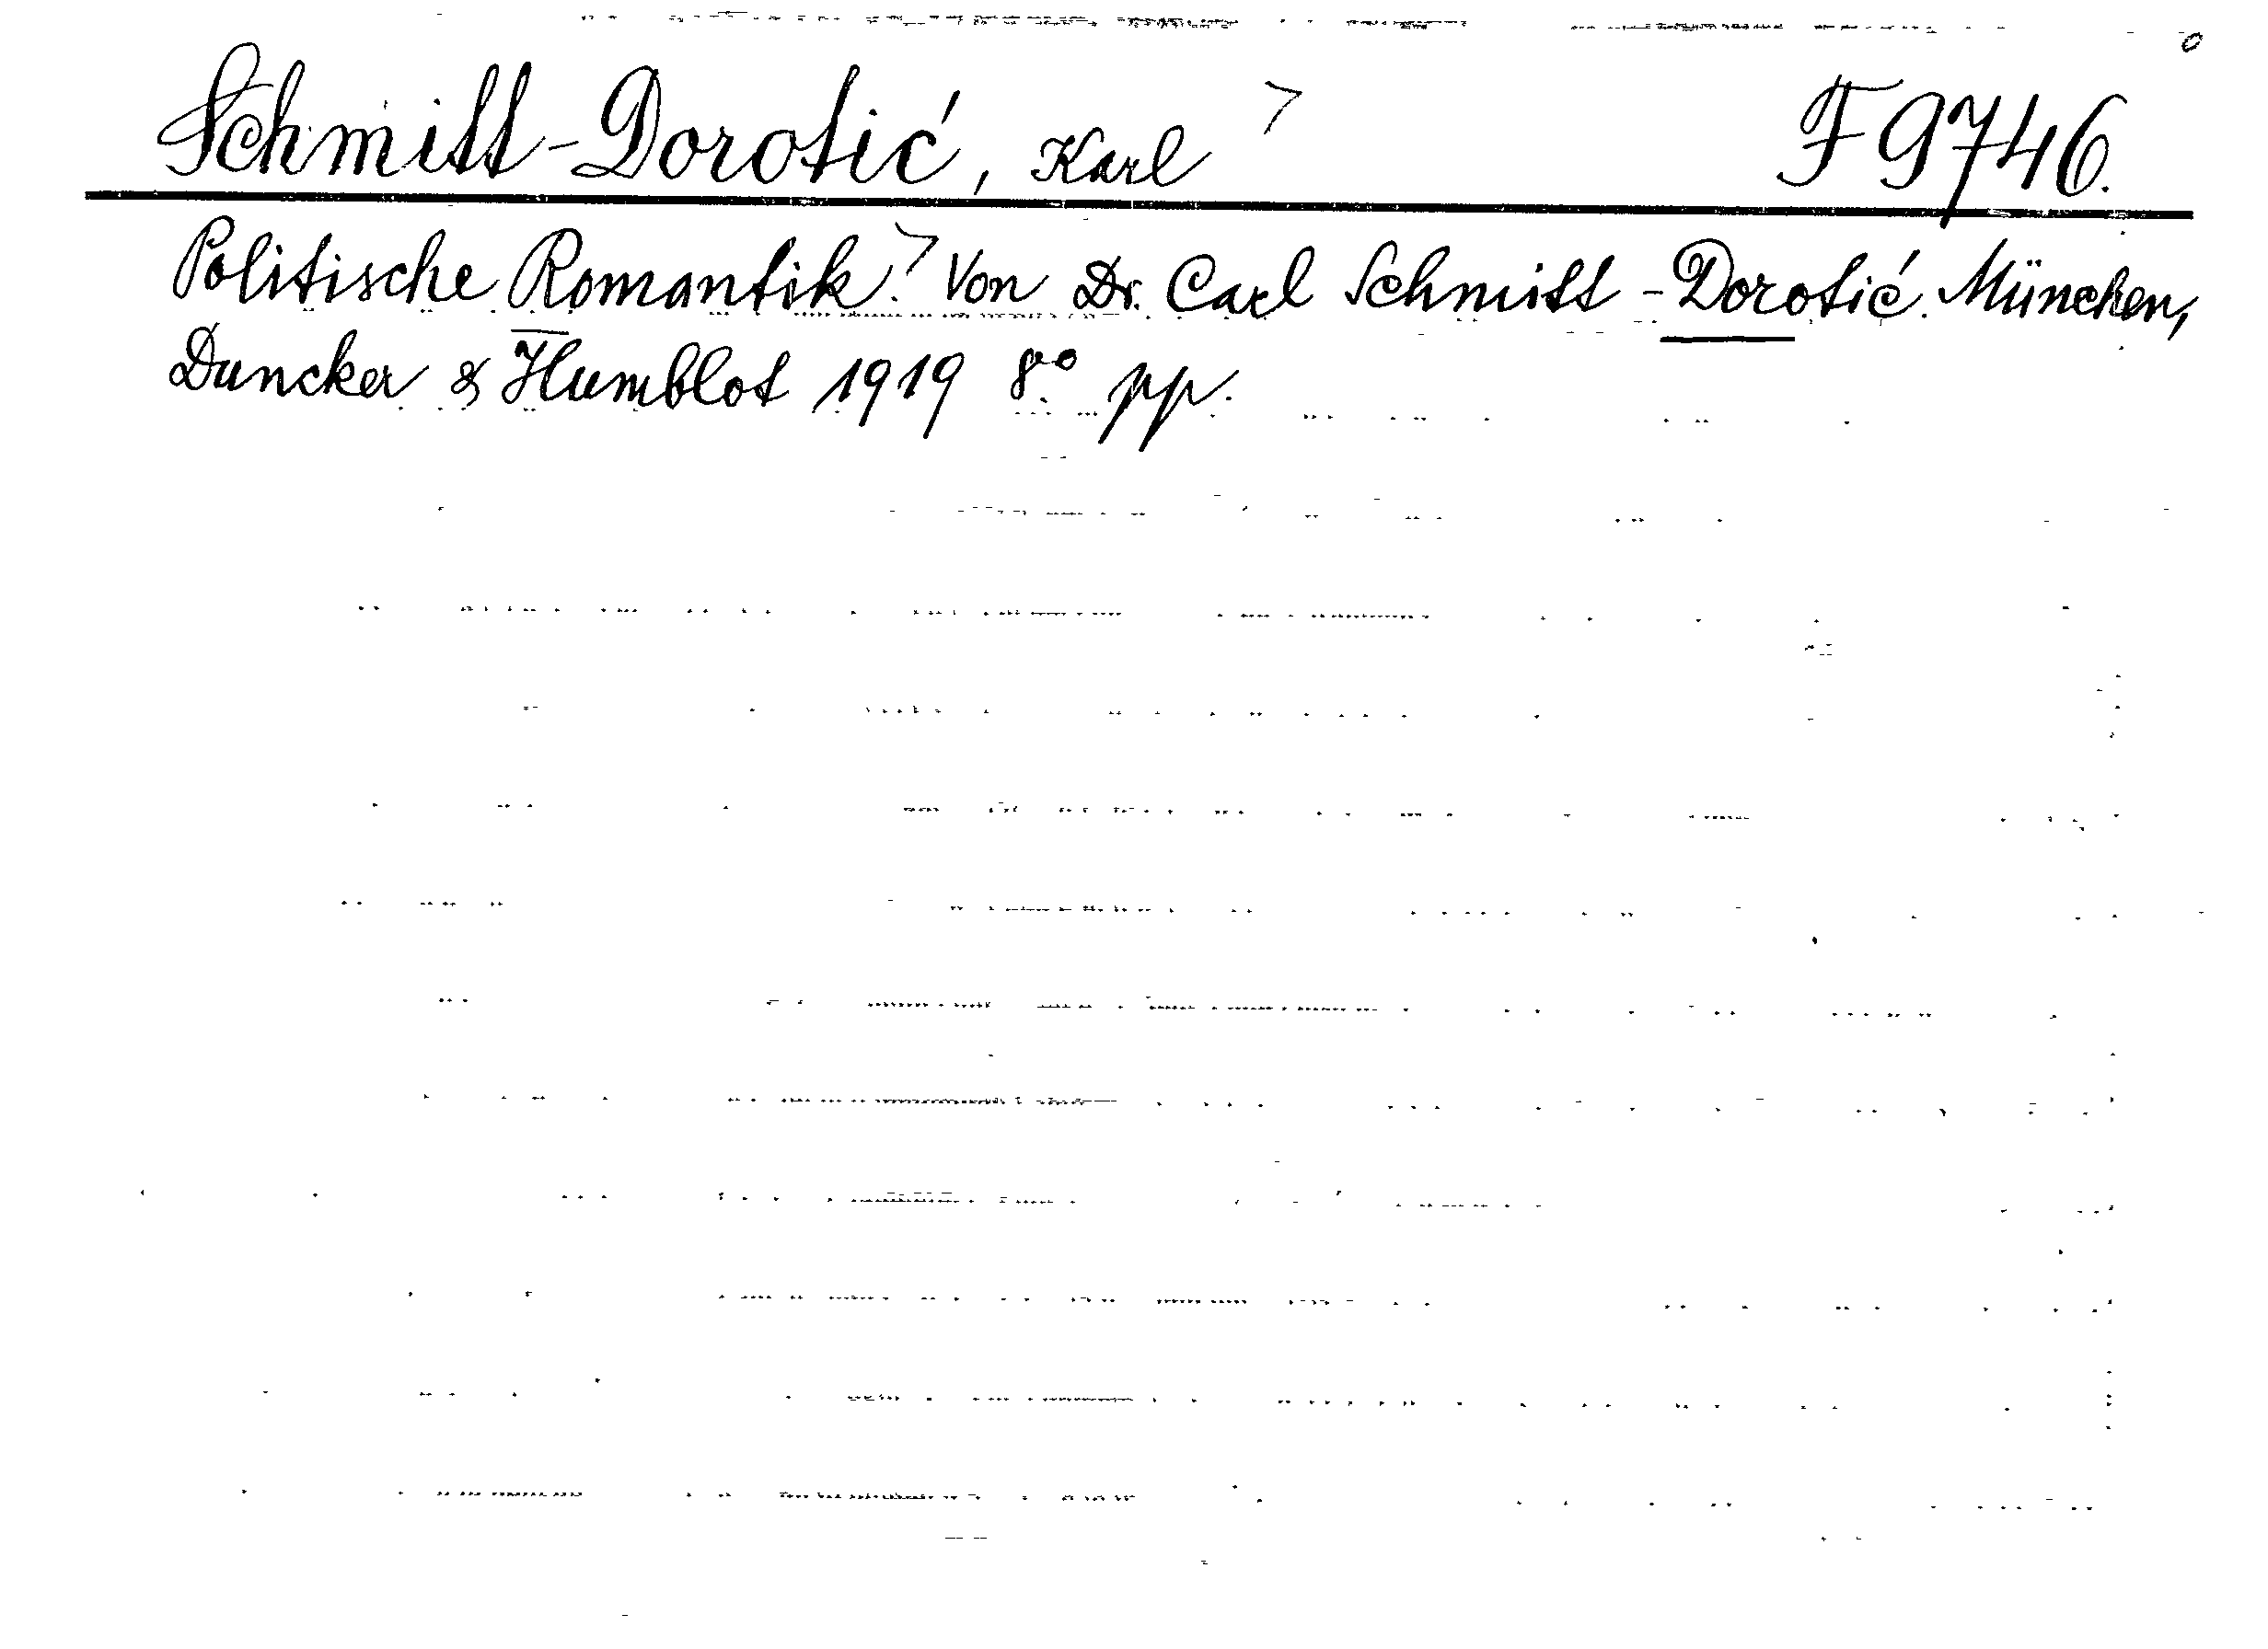 Schmitt-Dorotić, Karl F 9746.
Politische Romantik. Von Dr. Carl Schmitt-Dorotić. München,
Duncker & Humblot 1919 8° pp.